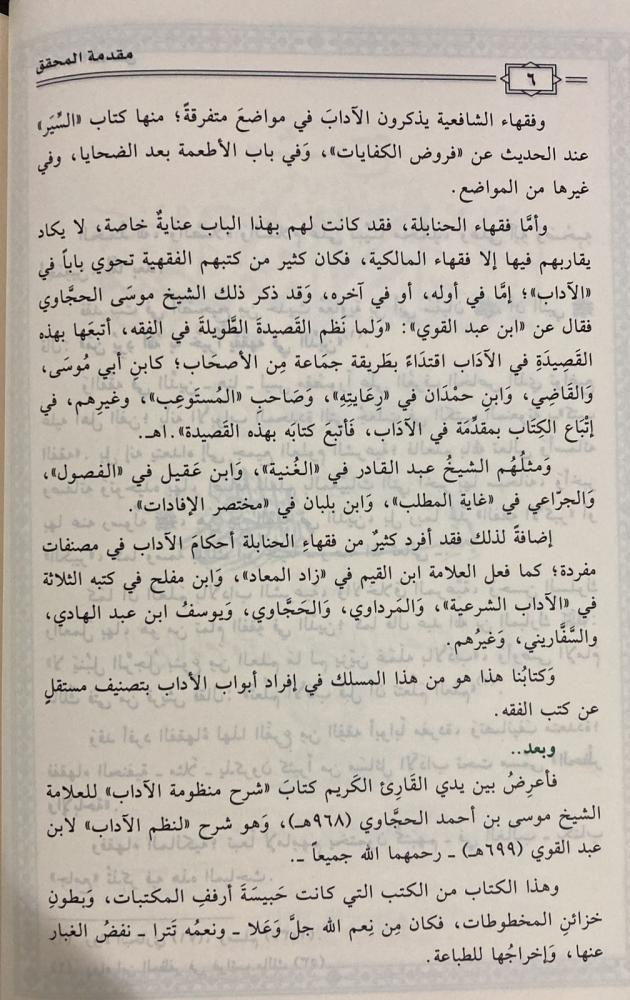 مقدمة المحقق
٦
وفقهاء الشافعية يذكرون الآدابَ في مواضعَ متفرقةً؛ منها كتاب «السِّيَر»
عند الحديث عن «فروض الكفايات»، وَفي باب الأطعمة بعد الضحايا، وفي
غيرها من المواضع.
وأمَّا فقهاء الحنابلة، فقد كانت لهم بهذا الباب عنايةٌ خاصة، لا يكاد
يقاربهم فيها إلا فقهاء المالكية، فكان كثير من كتبهم الفقهية تحوي باباً في
«الآداب»؛ إمَّا في أوله، أو في آخره، وَقد ذكر ذلك الشيخ موسَى الحجَّاوي
فقال عن «ابن عبد القوي»: «وَلما نَظم القَصيدةَ الطَّويلةَ في الفِقه، أتبَعها بهذه
القَصِيدَةِ في الآدَاب اقتدَاءً بطَريقة جمَاعة مِن الأصحَاب؛ كابنِ أبي مُوسَى،
وَالقَاضِي، وَابنِ حمْدَان في «رِعَايتِهِ»، وَصَاحبِ «المُستَوعِب»، وغيرِهم، في
إتْبَاع الكِتَاب بمقدِّمَة في الآدَاب، فَأتبعَ كتابَه بهذه القَصيدة».اهـ.
وَمثلُهُم الشيخُ عبد القادر في «الغُنية»، وَابن عَقيل في «الفصول»،
وَالجرّاعي في «غاية المطلب»، وَابن بلبان في «مختصر الإفادات».
إضافةً لذلك فقد أفرد كثيرٌ من فقهاءِ الحنابلة أحكامَ الآداب في مصنفات
مفردة؛ كما فعل العلامة ابن القيم في «زاد المعاد»، وَابن مفلح في كتبه الثلاثة
في «الآداب الشرعية»، وَالمَرداوي، وَالحَجَّاوي، وَيوسفُ ابن عبد الهادي،
والسَّفَّاريني، وَغيرُهم.
وَكتابُنا هذا هو من هذا المسلك في إفراد أبوابِ الأداب بتصنيف مستقلٍ
عن كتب الفقه.
وبعد..
فأعرِضُ بين يدي القَارِئ الكَريم كتابَ «شرح منظومة الآداب» للعلامة
الشيخ موسى بن أحمد الحجَّاوي (٩٦٨هـ)، وَهو شرح «لنظم الآداب» لابن
عبد القوي (٦٩٩هـ) ـ رحمهما الله جميعاً ـ.
وهذا الكتاب من الكتب التي كانت حَبيسَةَ أرففِ المكتبات، وَبطونِ
خزائنِ المخطوطات، فكان مِن نِعم الله جلَّ وَعَلا ـ ونعمُه تَترا ـ نفضُ الغبار
عنها، وَإخراجُها للطباعة.